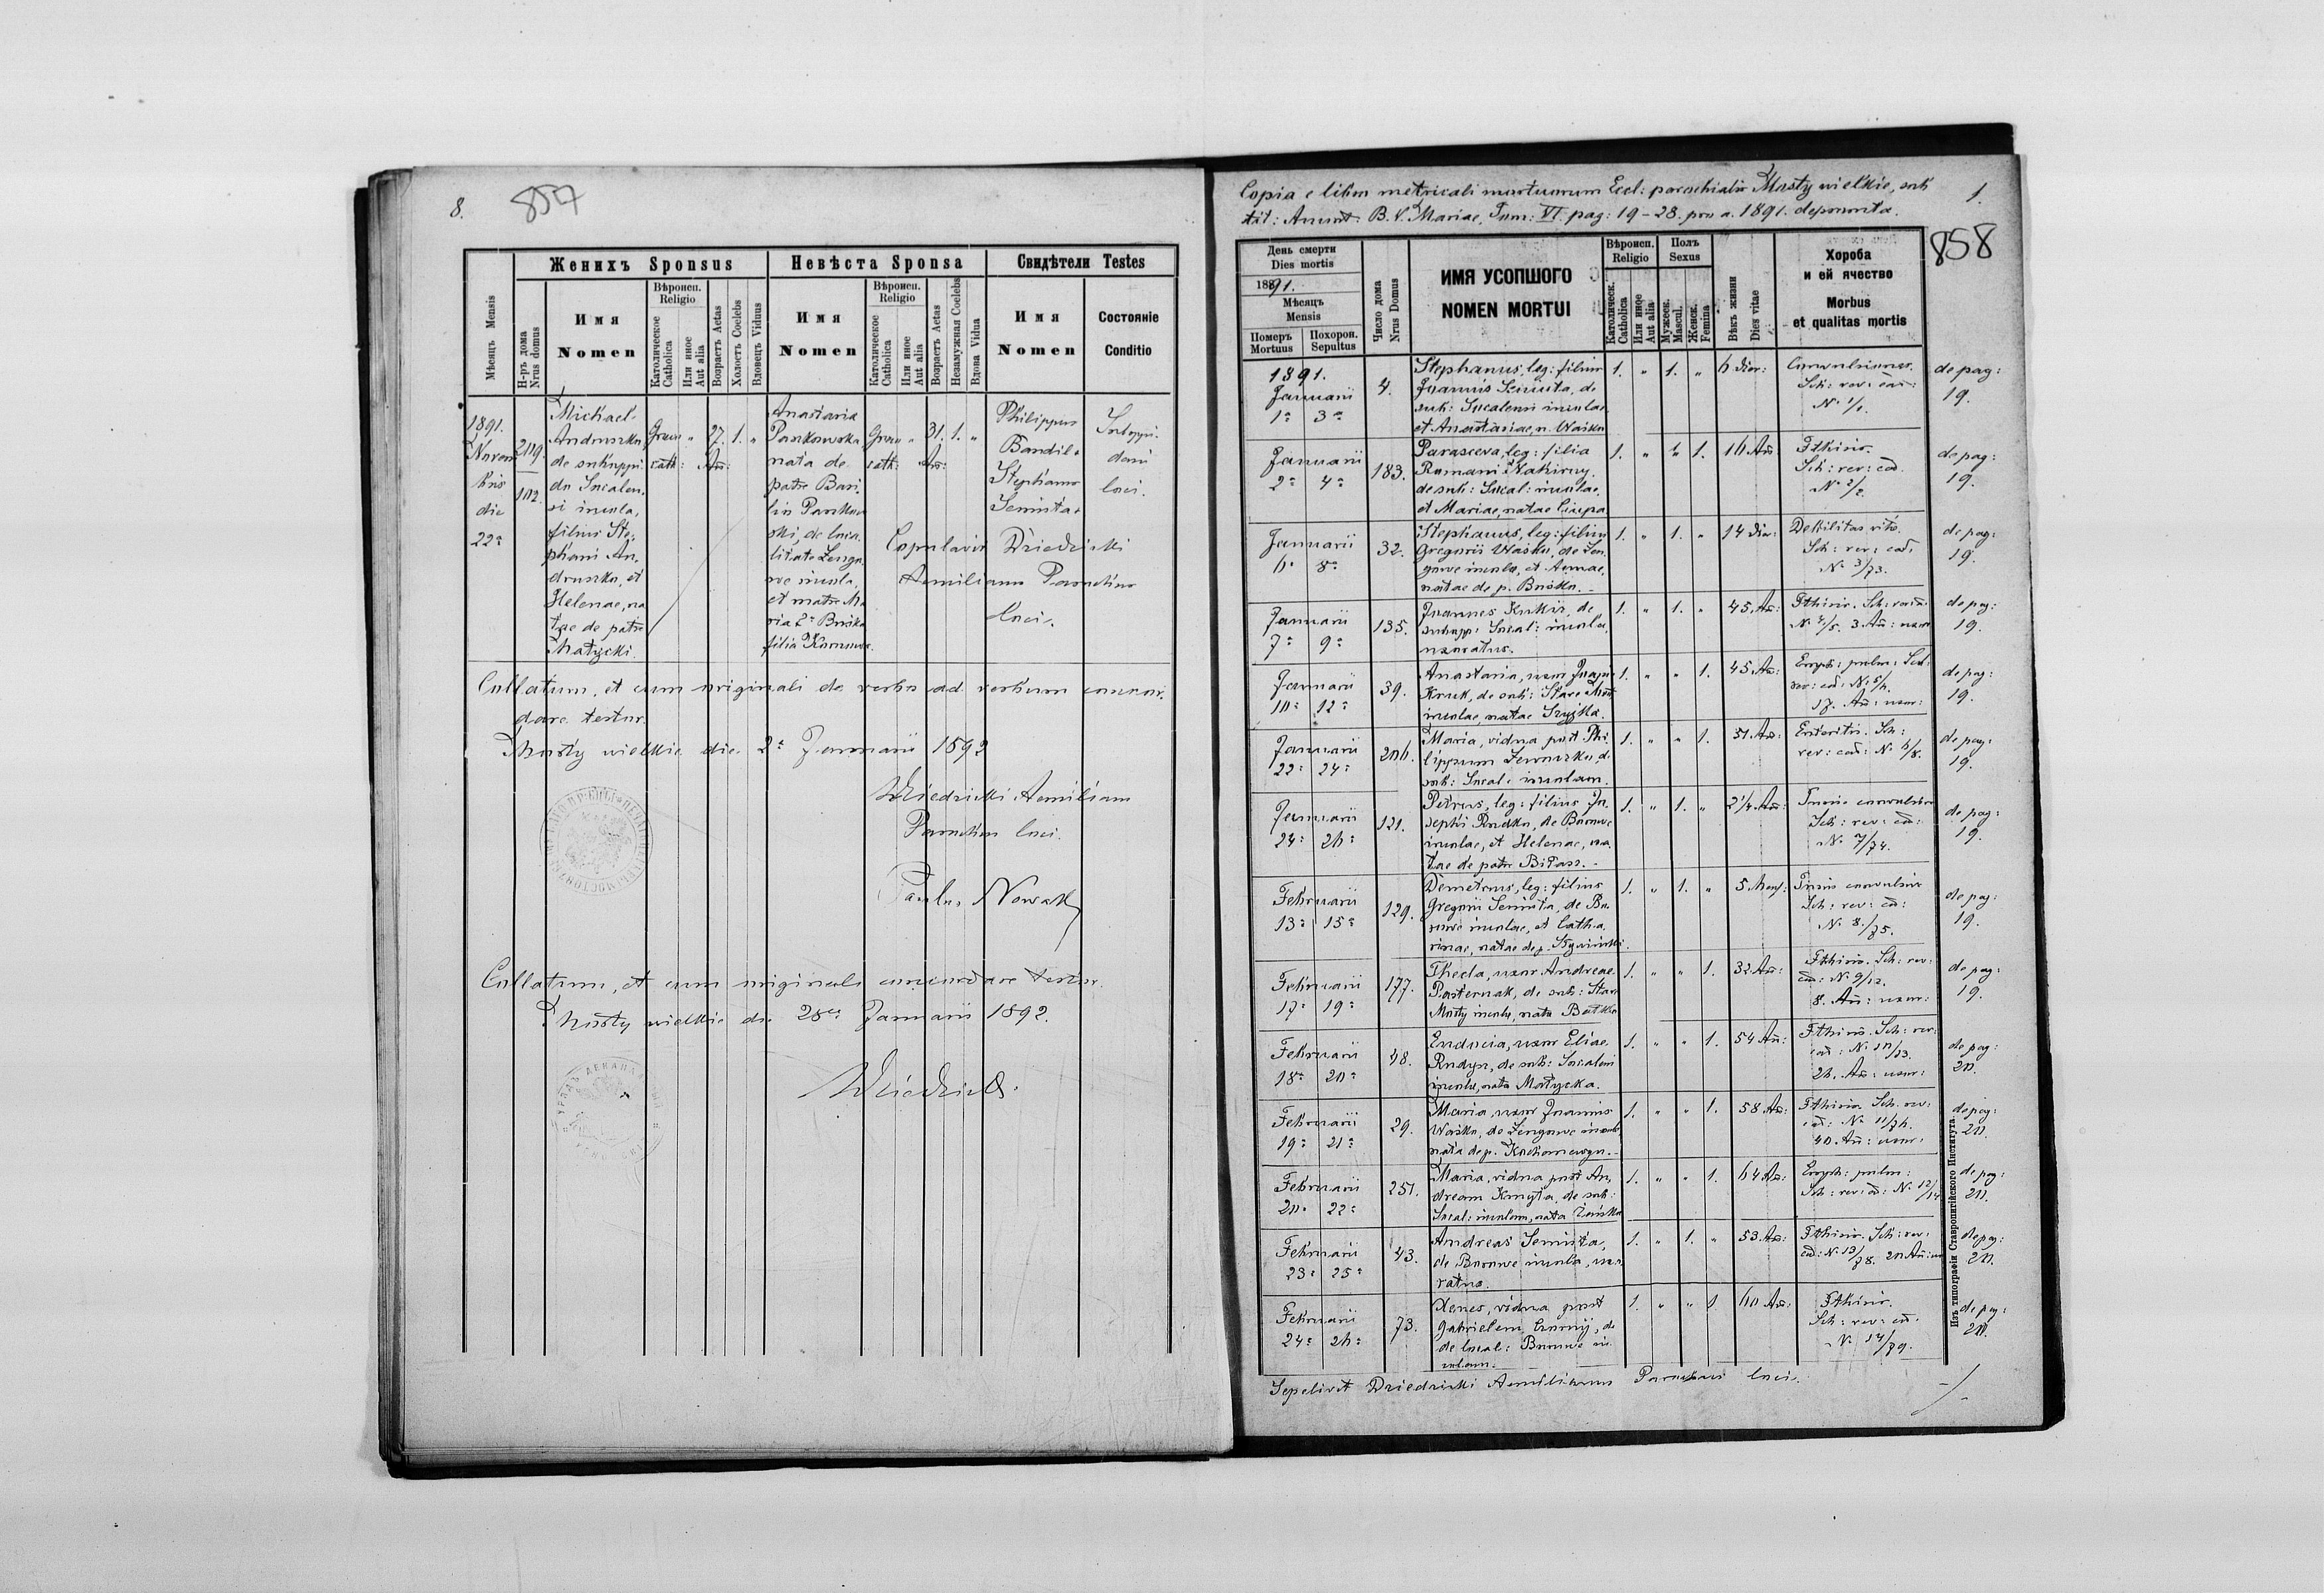 8.
857
Мѣсяцъ Mensis
Женихъ Sponsus
Невѣста Sponsa
Свидѣтели Testes
Н-ръ дома
Nrus domus
Имя
Nomen
Вѣроисп.
Religio
Католическое
Catholica
Или иное
Aut alia
Возрастъ Aetas
Холостъ Coelebs
Вдовецъ Viduus
Имя
Nomen
Вѣроисп.
Religio
Католическое
Catholica
Или иное
Aut alia
Возрастъ Aetas
Незамужная Coelebs
Вдова Vidua
Имя
Nomen
Состоянiе
Conditio
1891.
Novem
bris
die
22a
209
102.
Michael
Andruszko
de subuppi
do Socalen
si incola,
filius Ste-
phani An
druszko, et
Helenae, na
tae de patre
Matycki.
Graeco
cath:
"
27.
An:
1.
"
Anastasia
Pankowska
nata de
patre Basi
lio Pankow
ski, de loca
litate
incola,
et matre Ma
ria
filia
Graeco
cath:
"
31.
An:
1.
"
Philippus
Bandil
Stephanus
Seniuta
loci.
Copulavit Dziedzicki
Aemilianus Parochus
loci.
Collatum, et cum originali de verbo ad verbum concor
dare testor.
Mosty wielkie die 2a Januarii 1892
Dziedzicki Aemilianus
Parochus loci.
Paulus Nowak
Collatum, et cum originali concordare testor.
Mosty wielkie die 28a Januarii 1892.
Copia e libro metricali mortuorum Eccl: parochialis Mosty wielkie, sub
tit: Anunt: B. V. Mariae, Tom: VI. pag: 19-28. pro a. 1891. deprompta.
1.
858
День смерти
Dies mortis
1891.
Мѣсяцъ
Mensis
Померъ
Mortuus
Похорон.
Sepultus
Число дома
Nrus Domus
ИМЯ УСОПШОГО
NOMEN MORTUI
Вѣроисп.
Religio
Католическ.
Catholica
Или иное
Aut alia
Полъ
Sexus
Мужеск.
Mascul.
Женск.
Femina
Вѣкъ жизни
Dies vitae
Хороба
и ей ячество
Morbus
et qualitas mortis
1891.
Januarii
1a 3a
4.
Stephanus, leg: filius
Joannis Seniuta, de
sub: Socalensi incolae
et Anastasiae, n. Waśko
1. " 1. "
6 dier:
Convulsiones.
Sch: rev: cad:
No 1/1.
de pag:
19.
Januarii
2a 4a
183.
Parasceva, leg: filia
Romani
de sub: Socal: incolae,
et Mariae, natae
1. " " 1.
16 An:
Pthisis.
Sch: rev: cad.
No 2/2.
de pag:
19.
Januarii
6a 8a
32.
Stephanus, leg: filius
Gregorii Waśko, de
incolae, et Annae,
natae de p. Buśko.
1. " 1. "
14 dier:
Debilitas vitae.
Sch: rev: cad.
No 3/73.
de pag:
19.
Januarii
7a 9a
135.
Joannes Kukis, de
subupp: Socal: incola,
uxoratus.
1. " 1. "
45 An:
Pthisis. Sch: rev: cad:
No 4/5. 3 An: uxor
de pag:
19.
Januarii
10a 12a
39.
Anastasia, uxor
Kruk, de sub: Stare Most
incolae, natae
1. " " 1.
45 An:
Emph: pulm: Sch:
rev: cad: No 5/6.
17. An: uxor:
de pag:
19.
Januarii
22a 24a
206.
Maria, vidua post Phi
lippum
sub: Socal: incolam.
1. " " 1.
51 An:
Enteritis. Sch:
rev: cad: No 6/8.
de pag:
19.
Januarii
24a 26a
121.
Petrus, leg: filius Jo
sephi Rudko, de Borowe
incolae, et Helenae, na
tae de patre Biłas.
1. " 1. "
2 1/4 An:
Tussis convulsiva
Sch: rev: cad:
No 7/74.
de pag:
19.
Februarii
13a 15a
129.
Demetrius, leg: filius
Gregorii Seniuta, de Bo
rowe incolae, et Catha
rinae, natae de p.
1. " 1. "
5 Mens:
Tussis convulsiva
Sch: rev: cad:
No 8/75.
de pag:
19.
Februarii
17a 19a
177.
Thecla, uxor Andreae
Pasternak, de sub: Stare
Mosty incola, nata
1. " " 1.
32 An:
Pthisis. Sch: rev:
cad: No 9/12.
8. An: uxor:
de pag:
19.
Februarii
18a 20a
48.
Eudocia, uxor Eliae
Rudyn, de sub: Socalensi
incola, nata Matycka.
1. " " 1.
54 An:
Pthisis. Sch: rev:
cad: No 10/13.
26. An: uxor:
de pag:
20.
Februarii
19a 21a
29.
Maria, uxor Joannis
Waśko, de incola
nata de p.
1. " " 1.
58 An:
Pthisis. Sch: rev:
cad: No 11/76.
40. An: uxor:
de pag:
20.
Februarii
20a 22a
251.
Maria, vidua post An
dream Kmyta, de sub:
Socal: incolam, nata
1. " " 1.
64 An:
Emph: pulm:
Sch: rev: cad: No 12/14
de pag:
20.
Februarii
23a 25a
43.
Andreas Seniuta,
de Borowe incola, uxo
ratus.
1. " 1. "
53 An:
Pthisis. Sch: rev:
cad: No 13/78. 20 An: ux
de pag:
20.
Februarii
24a 26a
73.
Xenes, vidua post
Gabrielem Czornij, de
de local: Borowe in
colam.
1. " " 1
60 An:
Pthisis.
Sch: rev: cad.
No 14/79.
de pag:
20.
Sepelivit Dziedzicki Aemilianus Parochus loci.
Изъ типографiи Ставропигiйского Института.